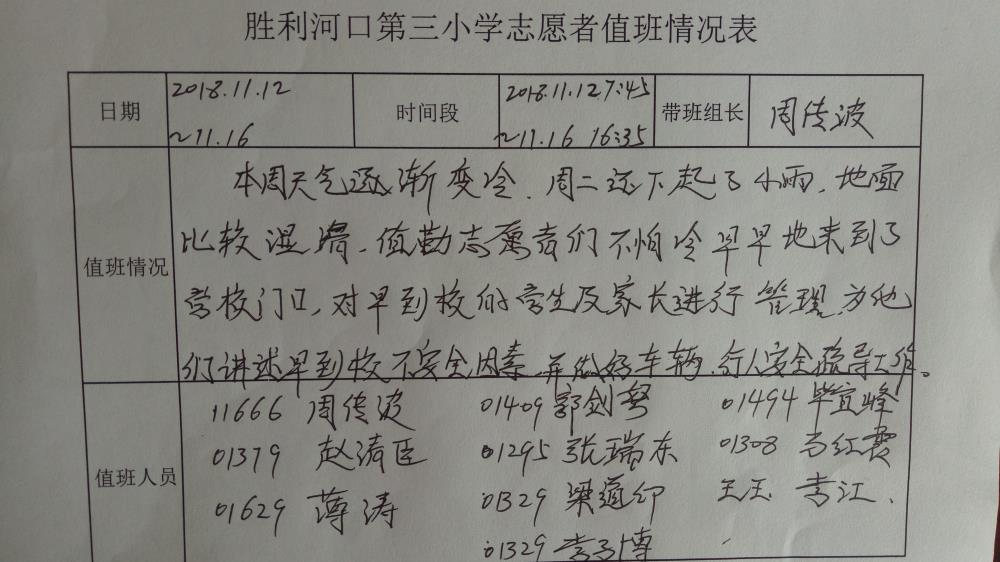 胜利河口第三小学志愿者值班情况表
日期 2018.11.12 ~11.16 时间段 2018.11.12 7:45 ~11.16 16:35 带班组长 周传波
值班情况
本周天气逐渐变冷.周二还下起了小雨.地面
比较湿滑.值勤志愿者们不怕冷早早地来到了
学校门口,对早到校的学生及家长进行管理.为他
们讲述早到校不安全因素.并做好车辆.行人安全疏导工作。
值班人员
11666 周传波 01409 郭剑 01494 毕宜峰
01379 赵清臣 01295 张瑞东 01308 马红霞
01629 薄涛 01329 梁道印 王玉 李江.
01329 李子博